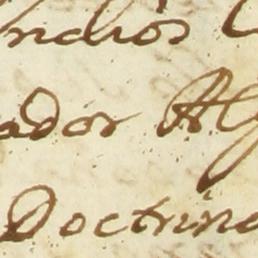 ndios
ador Al
Doctrina